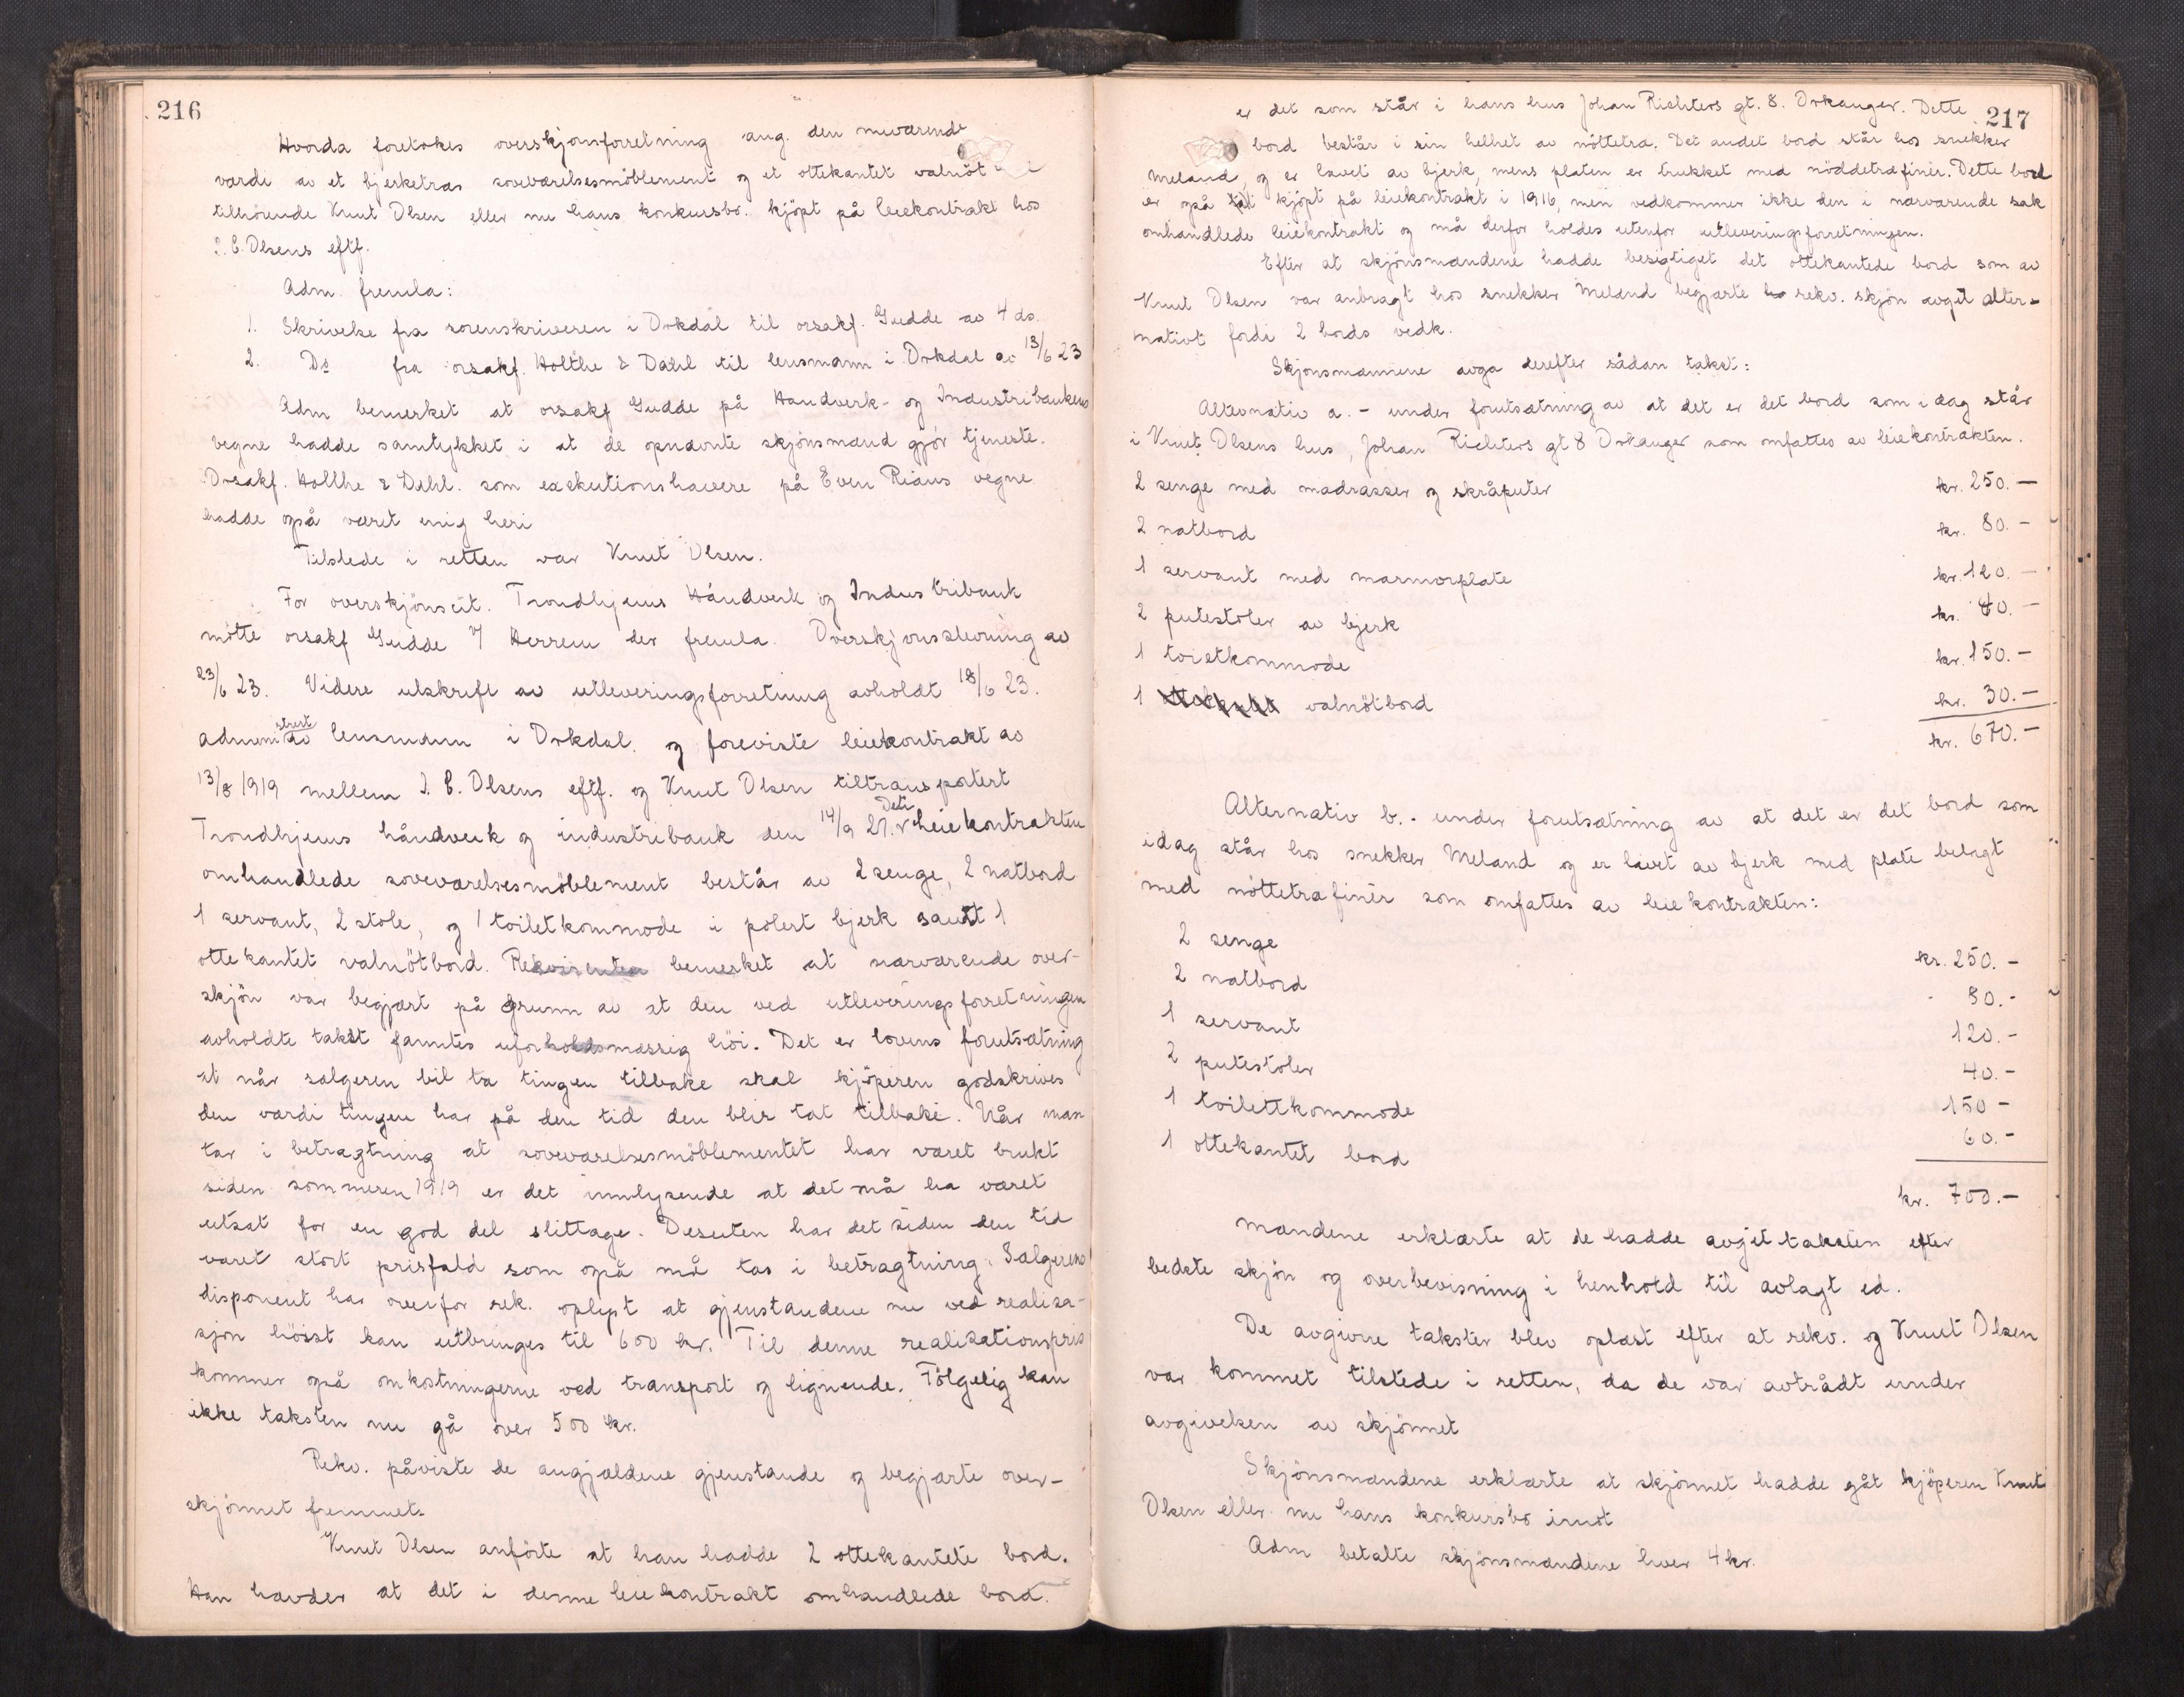 216
Hvorda foretokes overskjønsforretning ang. den nuværende
værdi av et bjerketræs soveværelsesmöblement og et ottekantet valnöt
tilhörende Knut Olsen eller nu hans konkursbo. kjöpt på leiekontrakt hos
I. E. Olsens eftf.
Adm. fremla:
1. Skrivelse fra sorenskriveren i Orkdal til orsakf. Gudde av 4 ds.
2. Do fra orsakf. Holthe & Dahl til lensmann i Orkdal av 13/6 23
Adm bemerket at orsakf Gudde på Handverk- og Industribankens
vegne hadde samtykket i at de opnævnte skjönsmænd gjör tjeneste.
Orsakf. Holthe & Dahl. som exekutionshavere på Even Rians vegne
hadde også været enig heri
Tilstede i retten var Knut Olsen.
For overskjönscit. Trondhjems Håndverk og Industribank
mötte orsakf Gudde v/ Herrem der fremla. Overskjönsstevning av
23/6 23. Videre utskrift av utleveringsforretning avholdt 18/6 23.
administrert av lensmann i Orkdal. og foreviste leiekontrakt av
13/8 1919 mellem I. E. Olsens eftf. og Knut Olsen tiltransportert
Trondhjems håndverk og industribank den 14/9 21. Det i leiekontrakten
omhandlede soveværelsesmöblement består av 2 senge, 2 natbord
1 servant, 2 stole, og 1 toiletkommode i polert bjerk samt 1
ottekantet valnötbord. Rekvirenten bemerket at nærværende over-
skjön var begjært på grunn av at den ved utleveringsforretningen
avholdte takst fanntes uforholdsmæssig höi. Det er lovens forutsætning
at når sælgeren vil ta tingen tilbake skal kjöperen godskrives
den værdi tingen har på den tid den blir tat tilbake. Når man
tar i betragtning at soveværelsesmöblementet har været brukt
siden sommeren 1919 er det innlysende at det må ha været
utsat for en god del slittage. Desuten har det siden den tid
været stort prisfald som også må tas i betragtning. Sælgerens
disponent har overfor rek. oplyst at gjenstandene nu ved realisa-
sjon höist kan utbringes til 600 kr. Til denne realisationspris
kommer også omkostningerne ved transport og lignende. Fölgelig kan
ikke taksten nu gå over 500 kr.
Rekv. påviste de angjældene gjenstande og begjærte over-
skjönnet fremmet.
Knut Olsen anförte at han hadde 2 ottekantete bord.
Han hævder at det i denne leiekontrakt omhandlede bord.
217
er det som står i hans hus Johan Richters gt. 8. Orkanger. Dette
bord består i sin helhet av nöttetræ. Det andet bord står hos snekker
Meland, og er lavet av bjerk, mens platen er trukket med nöddetræfinér. Dette bord
er også kjöpt på leiekontrakt i 1916, men vedkommer ikke den i nærværende sak
omhandlede leiekontrakt og må derfor holdes utenfor utleveringsforretningen.
Efter at skjönsmændene hadde besigtiget det ottekantede bord som av
Knut Olsen var anbragt hos snekker Meland begjærte rekv. skjön avgit alter-
nativt fordi 2 bords vedk.
Skjönsmænnene avga derefter sådan takst:
Alternativ a. - under forutsætning av at det er det bord som i dag står
i Knut Olsens hus, Johan Richters gt 8 Orkanger som omfattes av leiekontrakten.
2 senge med madrasser og skråputer kr. 250.—
2 natbord kr. 80.-
1 servant med marmorplate kr. 120.—
2 putestoler av bjerk kr. 40.—
1 toiletkommode kr. 150.-
1 valnötbord kr. 30.-
kr. 670.-
Alternativ b. - under forutsætning av at det er det bord som
idag står hos snekker Meland og er lavet av bjerk med plate belagt
med nöttetræfinér som omfattes av leiekontrakten:
2 senge kr. 250.-
2 natbord 80.-
1 servant 120.-
2 putestoler 40.-
1 toilettkommode 150-
1 ottekantet bord 60.-
kr. 700.-
Mændene erklærte at de hadde avgit taksten efter
bedste skjön og overbevisning i henhold til avlagt ed.
De avgivne takster blev oplæst efter at rekv. og Knut Olsen
var kommet tilstede i retten, da de var avtrådt under
avgivelsen av skjönnet
Skjönsmændene erklærte at skjönnet hadde gåt kjöperen Knut
Olsen eller nu hans konkursbo imot
Adm betalte skjönsmændene hver 4 kr.